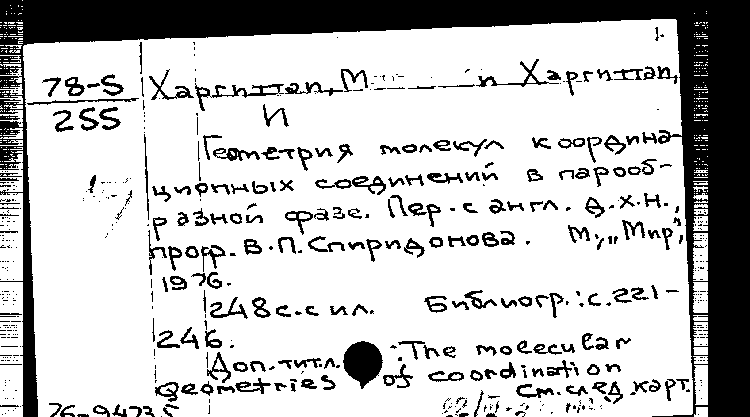 1.
78-5 Харгиттаи, М и Харгиттаи,
255 И
Геометрия молекул координа-
ционных соединений в парооб-
разной фазе. Пер. с англ. д.х.н.,
проф. В.П. Спиридонова. М., „Мир",
1976.
248с. с ил. Библиогр.: с. 221-
246.
Доп. титл. : The molecular
geometries of coordination
См. след. карт.